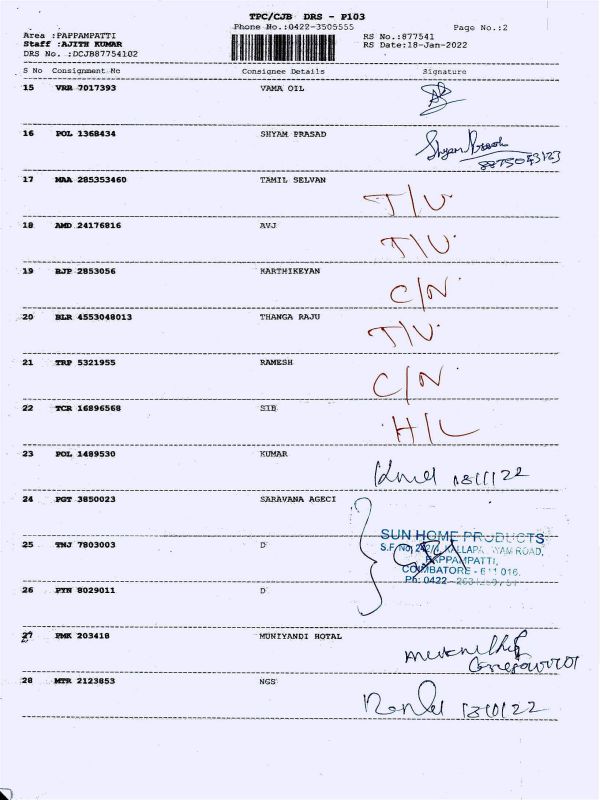 TPC/CJB DRS - P103
Phone No.:0422-3505555 Page No.:2
Area :PAPPAMPATTI RS No.:877541
Staff :AJITH KUMAR RS Date:18-Jan-2022
DRS No. :DCJB87754102
S No Consignment No Consignee Details Signature
15 VRR 7017393 VAMA OIL
16 POL 1368434 SHYAM PRASAD Shyam Prasad
8875053123
17 MAA 285353460 TAMIL SELVAN T/V
18 AMD 24176816 AVJ T/V
19 BJP 2853056 KARTHIKEYAN C/N
20 BLR 4553048013 THANGA RAJU T/V
21 TRP 5321955 RAMESH C/N
22 TCR 16896568 SIB H/L
23 POL 1489530 KUMAR 18/1/22
24 PGT 3850023 SARAVANA AGECI
SUN HOME PRODUCTS
25 TNJ 7803003 D S.F.No, ROAD,
PAPPAMPATTI,
COIMBATORE - 611 016.
26 PYN 8029011 D Ph: 0422 -
27 PMK 203418 MUNIYANDI HOTAL
28 MTR 2123853 NGS